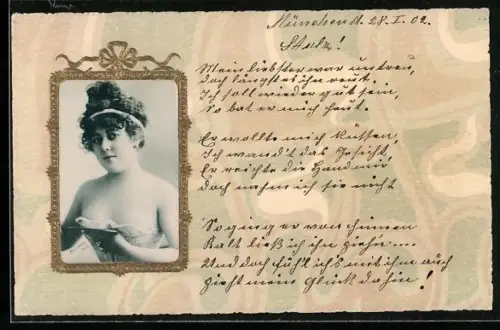 München d. 28. I. 02.
Stolz!
Mein liebster war untreu,
doch längst es ihn reut.
Ich soll wieder gut sein,
So bat er mich heut.
Er wollte mich küssen,
Ich wand't das Gesicht,
Er reichte die Hand mir
doch nahm ich sie nicht
So ging er von hinnen
Kalt ließ ich ihn ziehn....
Und doch fühl ich's mit ihm auch
zieht mein Glück dahin!